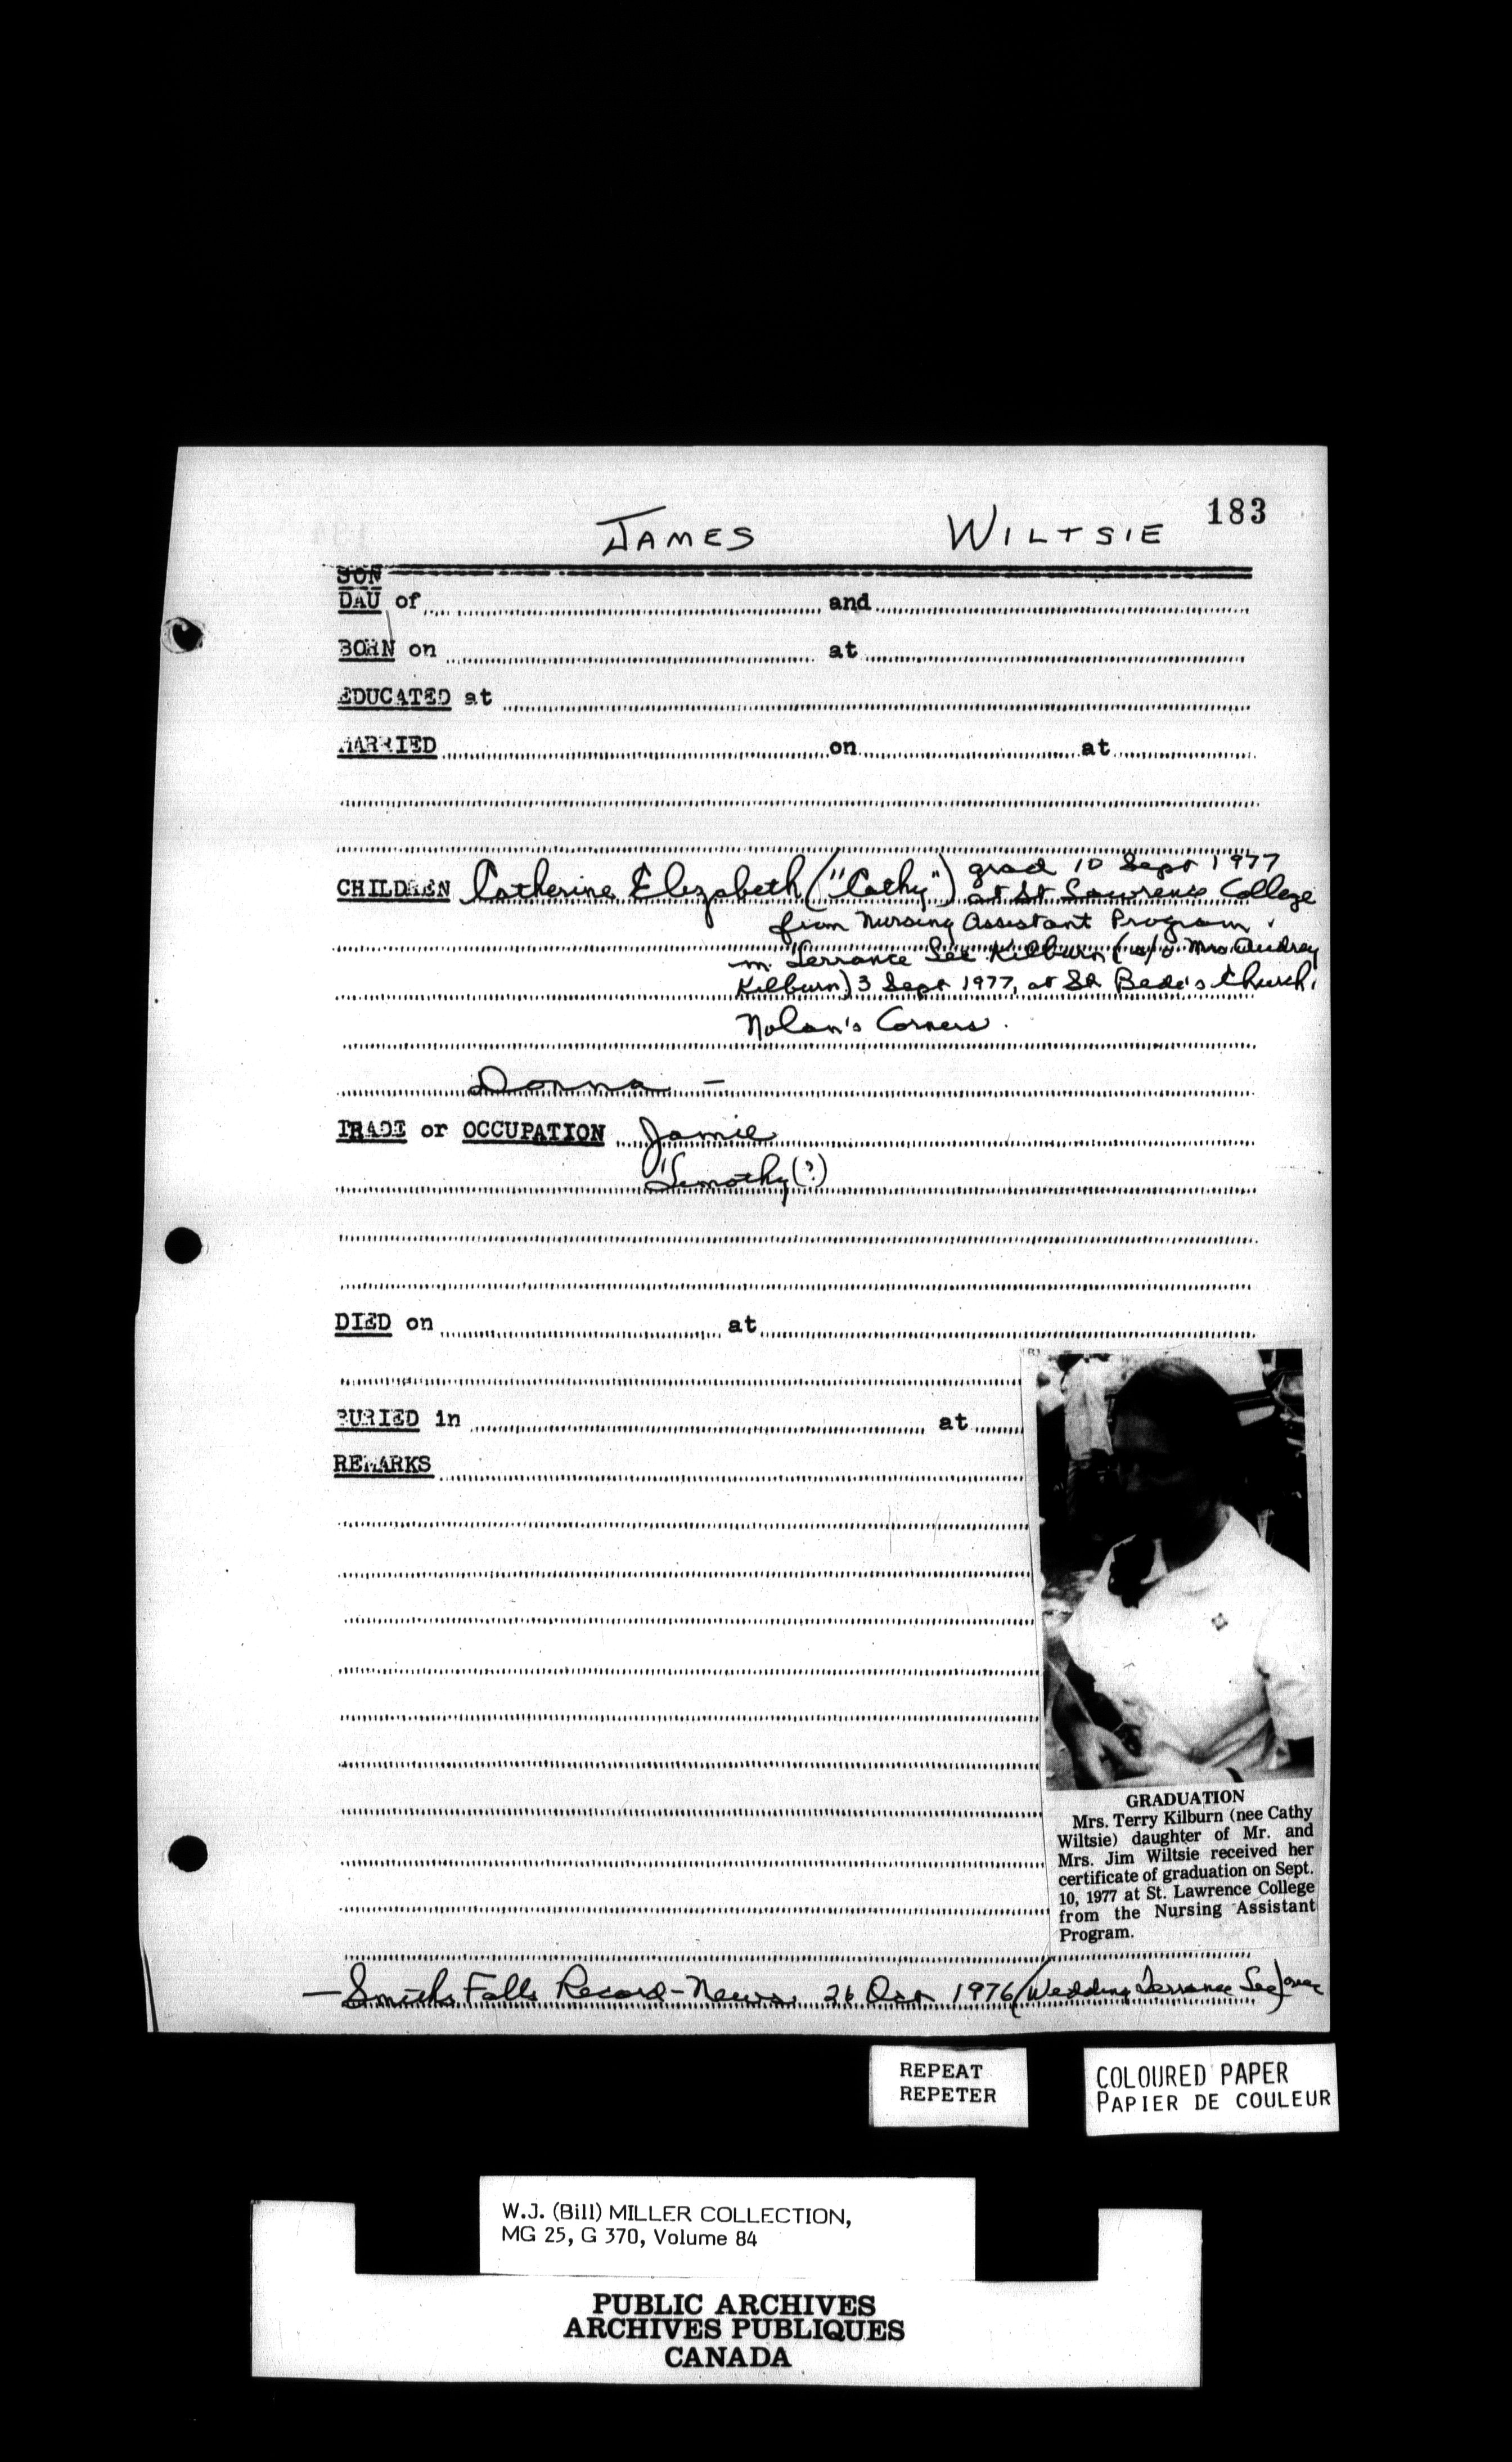 183
JAMES WILTSIE
SON
DAU of and
BORN on at
EDUCATED at
MARRIED on at
CHILDREN Catherine Elizabeth ("Cathy") grad 10 Sept 1977
at St Lawrence College
from Nursing Assistant Program.
m. Terrance Lee Kilburn (s/o Mrs Audrey
Kilburn) 3 Sept 1977, at St Bede's Church,
Nolan's Corners.
Donna —
TRADE or OCCUPATION Jamie
Timothy (?)
DIED on at
BURIED in at
REMARKS
GRADUATION
Mrs. Terry Kilburn (nee Cathy
Wiltsie) daughter of Mr. and
Mrs. Jim Wiltsie received her
certificate of graduation on Sept.
10, 1977 at St. Lawrence College
from the Nursing Assistant
Program.
— Smiths Falls Record-News 26 Oct 1976 (Wedding Terrance Lee)
REPEAT
REPETER
COLOURED PAPER
PAPIER DE COULEUR
W.J. (Bill) MILLER COLLECTION,
MG 25, G 370, Volume 84
PUBLIC ARCHIVES
ARCHIVES PUBLIQUES
CANADA